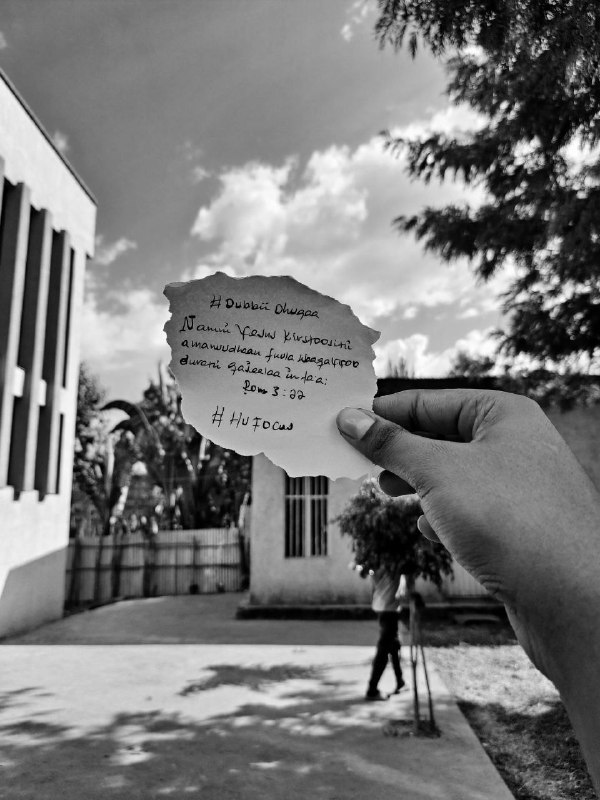 # Dubbii Dhugaa
Namni Yesus Kirstoositti
amanuudhaan fuula Waaqayyoo
duratti qajeelaa in ta'a:
Rom 3:22
# HU FOCUS